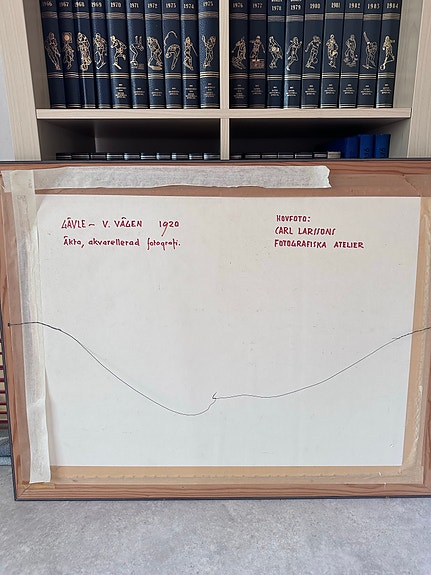 1966 1967 1968 1969 1970 1971 1972 1973 1974 1975
1976 1977 1978 1979 1980 1981 1982 1983 1984
GÄVLE – V. VÄGEN 1920
Äkta, akvarellerad fotografi.
HOVFOTO:
CARL LARSSONS
FOTOGRAFISKA ATELIER